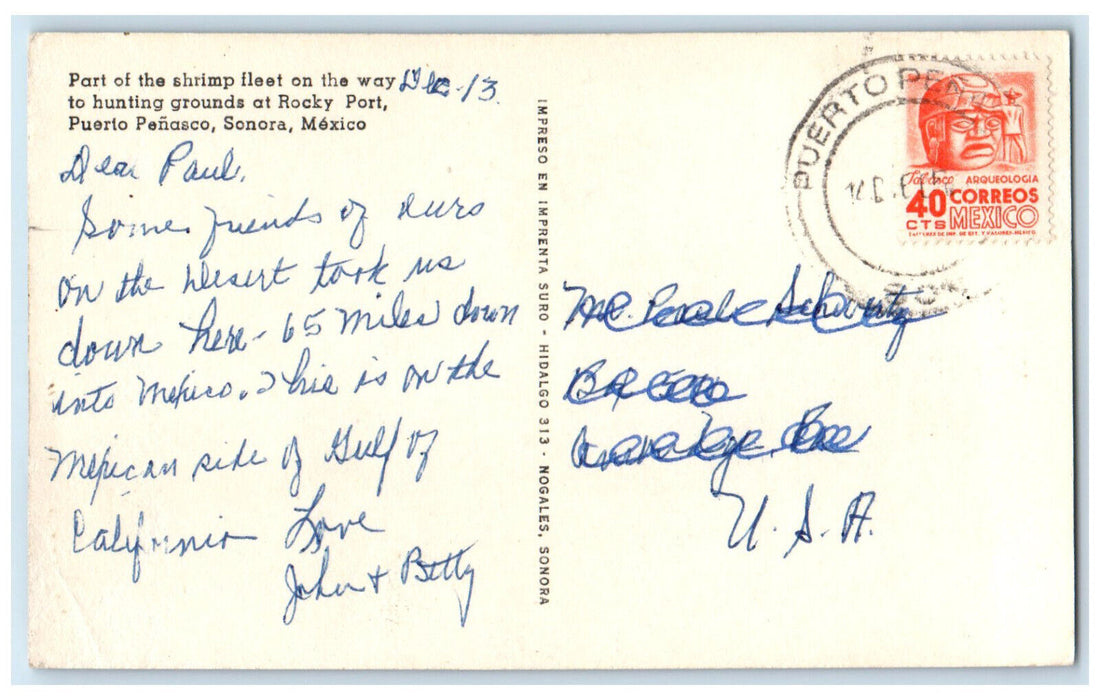 Part of the shrimp fleet on the way
to hunting grounds at Rocky Port,
Puerto Peñasco, Sonora, México
Dec-13.
Dear Paul,
Some friends of ours
on the Desert took us
down here - 65 miles down
into Mexico. This is on the
Mexican side of Gulf of
California Love
John + Betty
IMPRESO EN IMPRENTA SURO - HIDALGO 313 - NOGALES, SONORA
PUERTO PEÑ
Tabasco ARQUEOLOGIA
40 CORREOS
CTS MEXICO
Mr.
U. S. A.